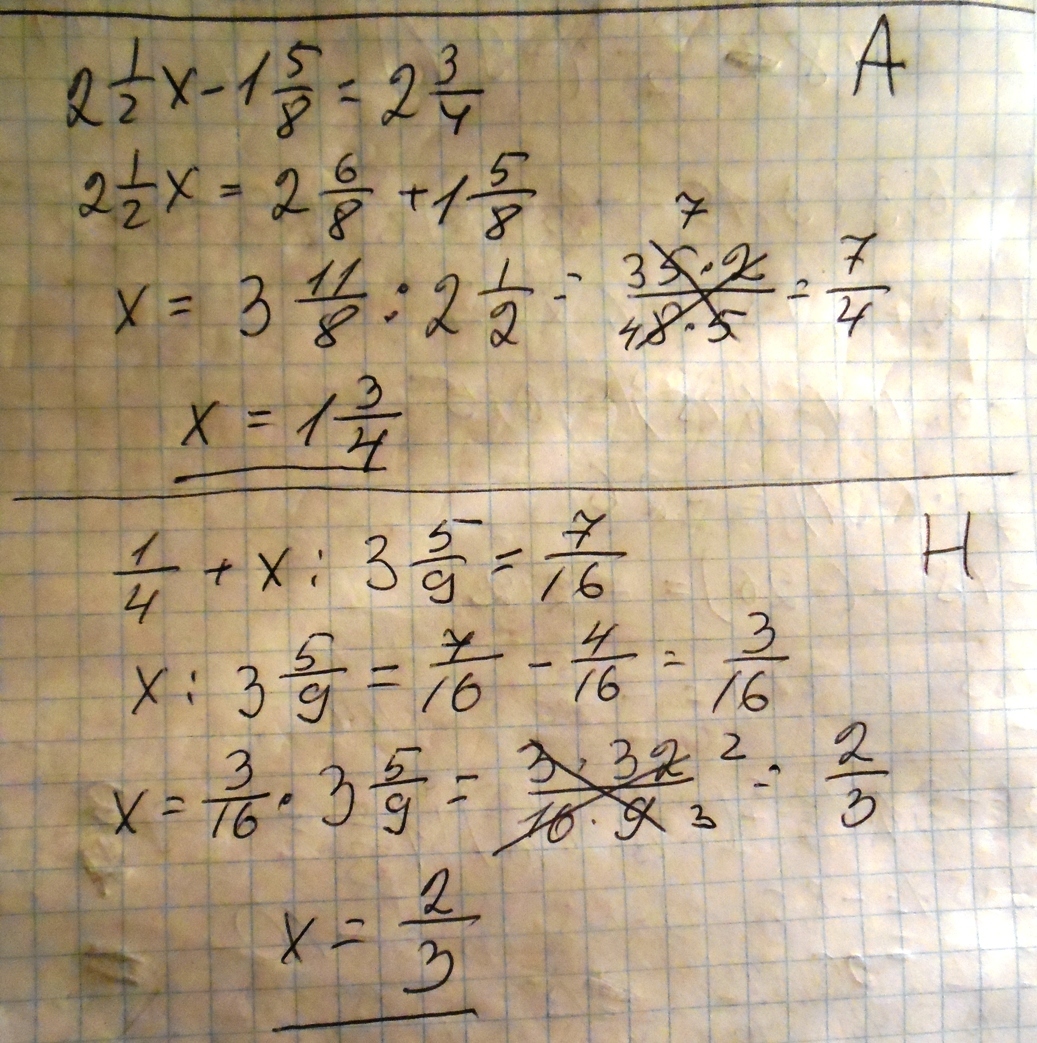 2 1/2 x - 1 5/8 = 2 3/4 А
2 1/2 x = 2 6/8 + 1 5/8
x = 3 11/8 : 2 1/2 = 35 7 · 2 / 4 8 · 5 = 7/4
x = 1 3/4
1/4 + x : 3 5/9 = 7/16 Н
x : 3 5/9 = 7/16 - 4/16 = 3/16
x = 3/16 · 3 5/9 = 3 · 32 2 / 16 · 9 3 = 2/3
x = 2/3